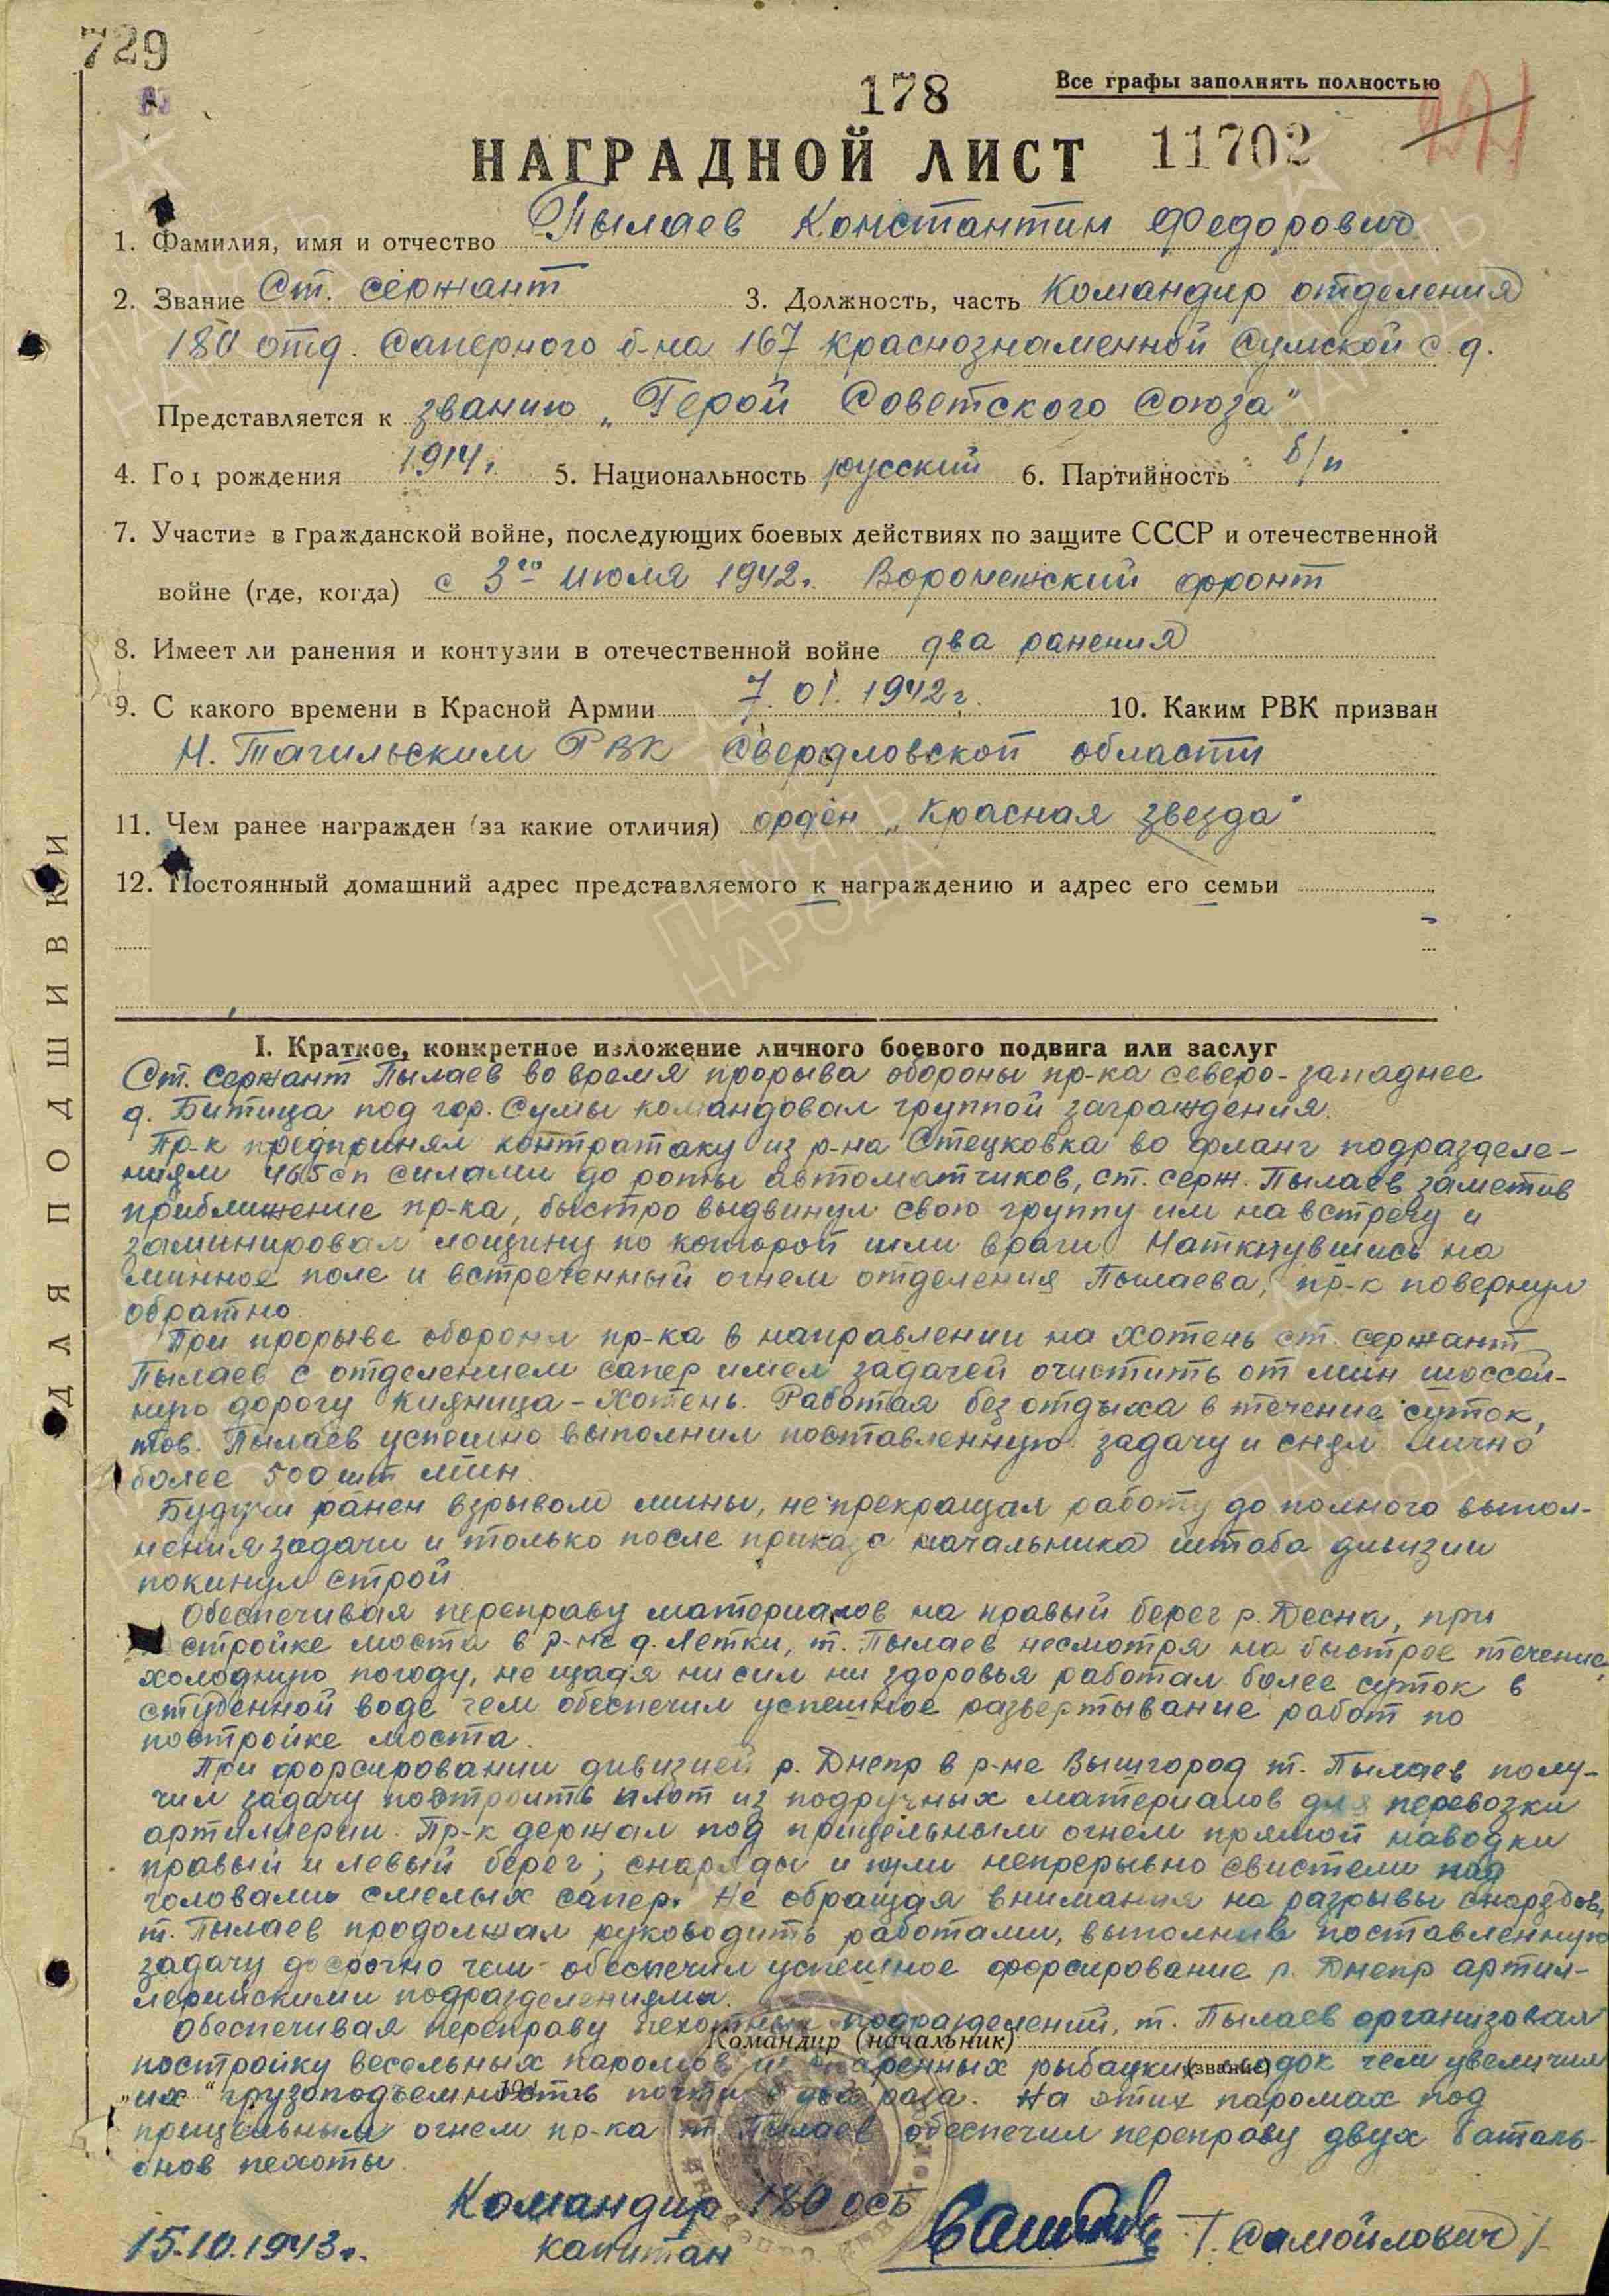 729
178
Все графы заполнять полностью
НАГРАДНОЙ ЛИСТ 11702
1. Фамилия, имя и отчество Пылаев Константин Федорович
2. Звание Ст. сержант 3. Должность, часть Командир отделения
180 отд. саперного б-на 167 краснознаменной Сумской с.д.
Представляется к званию „Герой Советского Союза"
4. Год рождения 1914г. 5. Национальность русский 6. Партийность б/п
7. Участие в гражданской войне, последующих боевых действиях по защите СССР и отечественной
войне (где, когда) с 3го июля 1942г. Воронежский фронт
8. Имеет ли ранения и контузии в отечественной войне два ранения
9. С какого времени в Красной Армии 7.01.1942г. 10. Каким РВК призван
Н. Тагильским РВК Свердловской области
11. Чем ранее награжден (за какие отличия) орден „Красная звезда"
12. Постоянный домашний адрес представляемого к награждению и адрес его семьи
ДЛЯ ПОДШИВКИ
I. Краткое, конкретное изложение личного боевого подвига или заслуг
Ст. сержант Пылаев во время прорыва обороны пр-ка северо-западнее
д. Битица под гор. Сумы командовал группой заграждения.
Пр-к предпринял контратаку из р-на Стецковка во фланг подразделе-
ниям 465сп силами до роты автоматчиков, ст. серж. Пылаев заметив
приближение пр-ка, быстро выдвинул свою группу им навстречу и
заминировал лощину по которой шли враги. Наткнувшись на
минное поле и встреченный огнем отделения Пылаева, пр-к повернул
обратно.
При прорыве обороны пр-ка в направлении на Хотень ст. сержант
Пылаев с отделением сапер имел задачей очистить от мин шоссей-
ную дорогу Кияница - Хотень. Работая без отдыха в течение суток,
тов. Пылаев успешно выполнил поставленную задачу и снял лично
более 500 шт мин.
Будучи ранен взрывом мины, не прекращал работу до полного выпол-
нения задачи и только после приказа начальника штаба дивизии
покинул строй.
Обеспечивая переправу материалов на правый берег р. Десна, при
стройке моста в р-не д. Летки, т. Пылаев несмотря на быстрое течение,
холодную погоду, не щадя ни сил ни здоровья работал более суток в
студенной воде чем обеспечил успешное развертывание работ по
постройке моста.
При форсировании дивизией р. Днепр в р-не Вышгород т. Пылаев полу-
чил задачу построить плот из подручных материалов для перевозки
артиллерии. Пр-к держал под прицельным огнем прямой наводки
правый и левый берег; снаряды и пули непрерывно свистели над
головами смелых сапер. Не обращая внимания на разрывы снарядов,
т. Пылаев продолжал руководить работами, выполнив поставленную
задачу досрочно чем обеспечил успешное форсирование р. Днепр артил-
лерийскими подразделениями.
Обеспечивая переправу пехотных подразделений, т. Пылаев организовал
Командир (начальник)
постройку весельных паромов из спаренных рыбацких лодок чем увеличил
(звание)
„их" грузоподъемность почти в два раза. На этих паромах под
прицельным огнем пр-ка т. Пылаев обеспечил переправу двух баталь-
онов пехоты.
Командир 180 ОСБ
15.10.1943г. капитан /Самойлович/
ПАМЯТЬ
НАРОДА